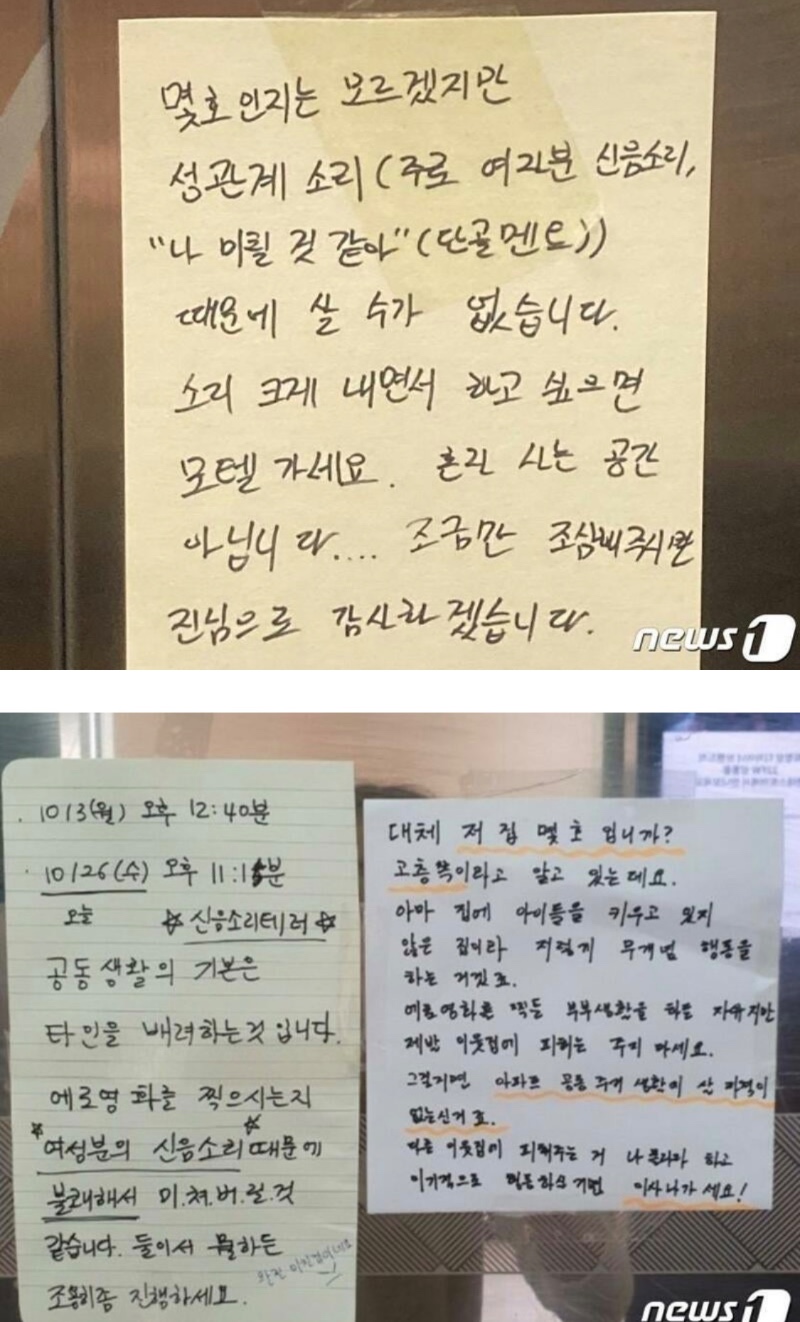 몇호인지는 모르겠지만
성관계 소리 (주로 여자분 신음소리,
"나 미칠 것 같아" (단골멘트))
때문에 살 수가 없습니다.
소리 크게 내면서 하고 싶으면
모텔 가세요. 혼자 사는 공간
아닙니다.... 조금만 조심해주시면
진심으로 감사하겠습니다.
news1
10/3(월) 오후 12:40분
10/26(수) 오후 11:15분
오늘 ☆신음소리테러☆
공동생활의 기본은
타인을 배려하는것입니다.
에로영화를 찍으시는지
*여성분의 신음소리*때문에
불쾌해서 미.쳐.버.릴.것
같습니다. 둘이서 뭘하든
조용히좀 진행하세요.
완전 미친것이네요
대체 저 집 몇호 입니까?
고층쪽이라고 알고 있는데요.
아마 집에 아이들을 키우고 있지
않은 집이라 저렇게 무개념 행동을
하는 거겠죠.
에로영화를 찍든 부부생활을 하든 자유지만
제발 이웃집에 피해는 주지 마세요.
그럴거면 아파트 공동 주거 생활에 살 자격이
없는신거죠.
다른 이웃집이 피해주는 거 나 몰라라 하고
이기적으로 행동하실거면 이사나가세요!
news1